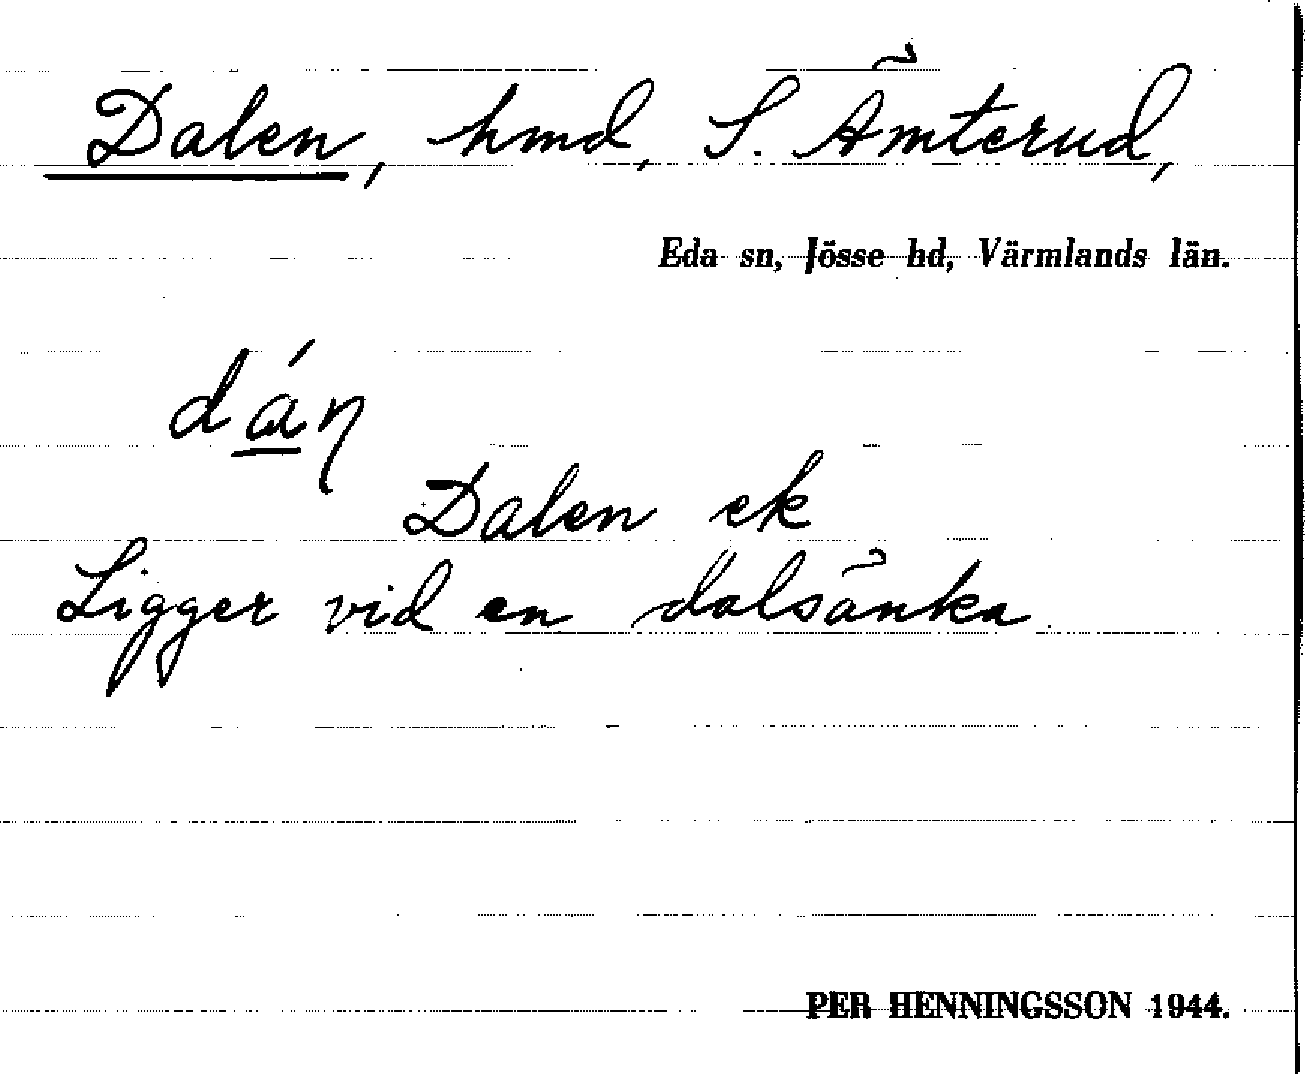 Dalen, hmd, S. Ämterud,
Eda sn, Jösse hd, Värmlands län.
dáη
Dalen ek
Ligger vid en dalsänka.
PER HENNINGSSON 1944.